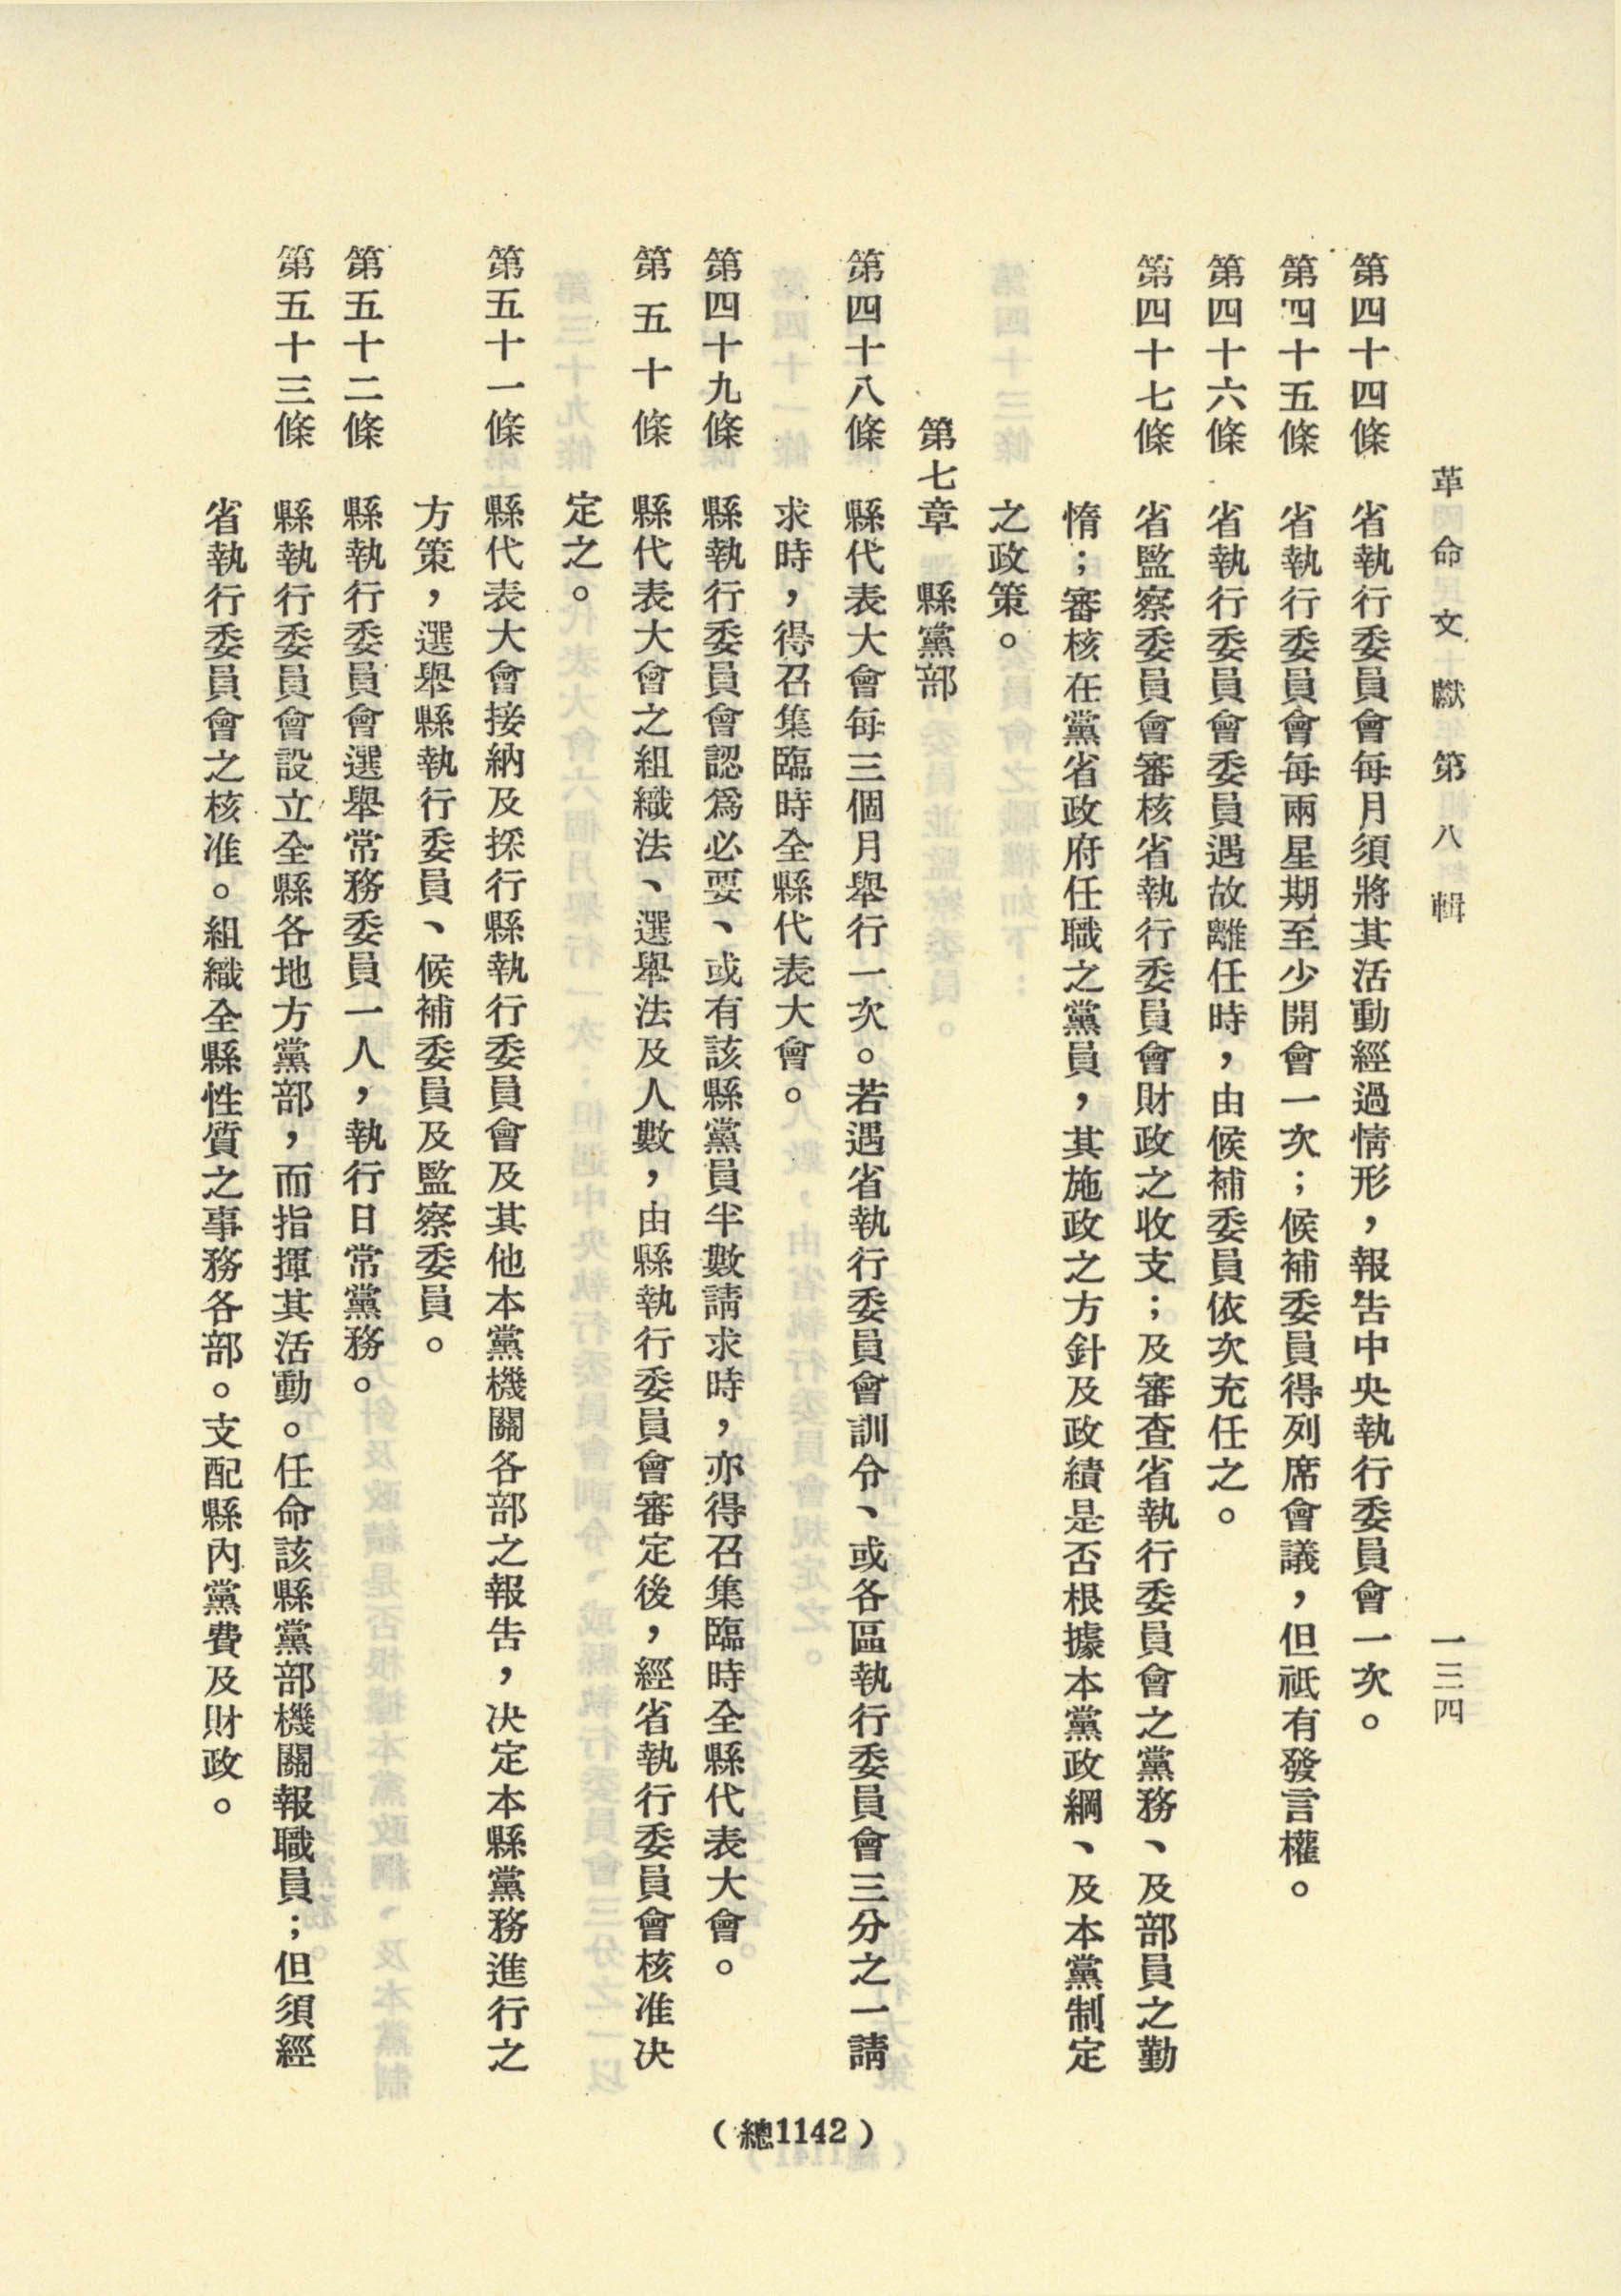 革命文獻　第八輯　一三四
第四十四條　省執行委員會每月須將其活動經過情形，報告中央執行委員會一次。
第四十五條　省執行委員會每兩星期至少開會一次；候補委員得列席會議，但祗有發言權。
第四十六條　省執行委員會委員遇故離任時，由候補委員依次充任之。
第四十七條　省監察委員會審核省執行委員會財政之收支；及審查省執行委員會之黨務、及部員之勤
惰；審核在黨省政府任職之黨員，其施政之方針及政績是否根據本黨政綱、及本黨制定
之政策。
第七章　縣黨部
第四十八條　縣代表大會每三個月舉行一次。若遇省執行委員會訓令、或各區執行委員會三分之一請
求時，得召集臨時全縣代表大會。
第四十九條　縣執行委員會認爲必要、或有該縣黨員半數請求時，亦得召集臨時全縣代表大會。
第五十條　縣代表大會之組織法、選舉法及人數，由縣執行委員會審定後，經省執行委員會核准决
定之。
第五十一條　縣代表大會接納及採行縣執行委員會及其他本黨機關各部之報告，决定本縣黨務進行之
方策，選舉縣執行委員、候補委員及監察委員。
第五十二條　縣執行委員會選舉常務委員一人，執行日常黨務。
第五十三條　縣執行委員會設立全縣各地方黨部，而指揮其活動。任命該縣黨部機關報職員；但須經
省執行委員會之核准。組織全縣性質之事務各部。支配縣內黨費及財政。
（總1142）